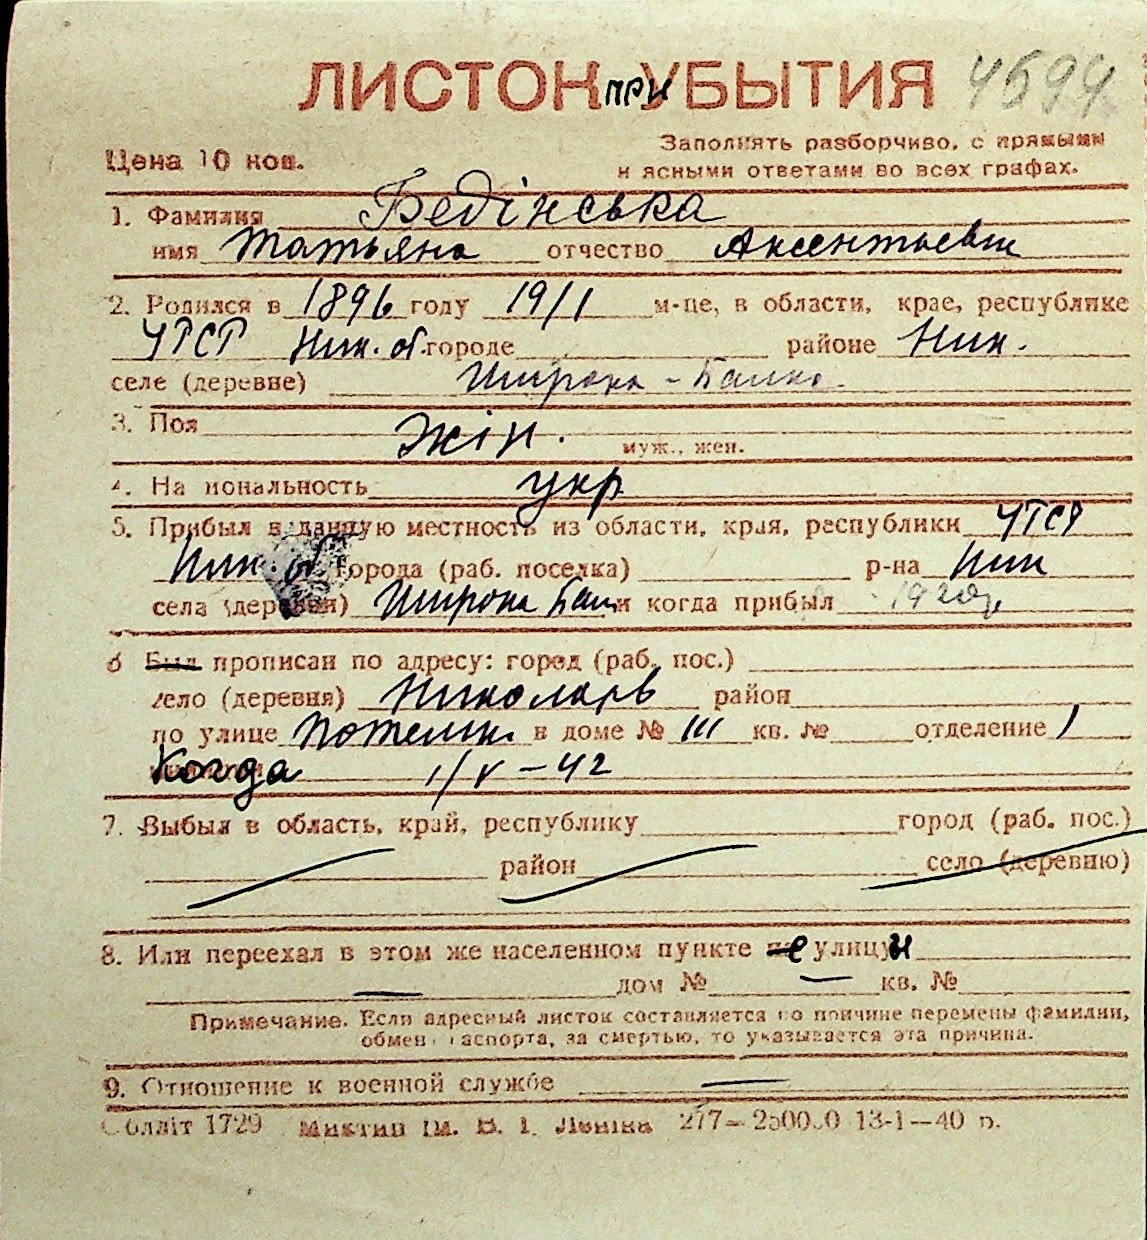 ЛИСТОК при УБЫТИЯ 4594
Цена 10 коп.
Заполнять разборчиво, с прямыми
и ясными ответами во всех графах.
1. Фамилия Бедінська
имя Татьяна отчество Аксентьевн
2. Родился в 1896 году 19/1 м-це, в области, крае, республике
УРСР Ник. об. городе районе Ник.
селе (деревне) Широка-Балка
3. Пол жін. муж., жен.
4. На иональность укр
5. Прибыл в данную местность из области, края, республики УРСР
Ник. об. города (раб. поселка) р-на Ник
села (деревни) Широка Бал и когда прибыл
6 Был прописан по адресу: город (раб. пос.)
село (деревня) Николаев район
по улице Потемк. в доме № 111 кв. № отделение 1
Когда 1/V-42
7. Выбыл в область, край, республику город (раб. пос.)
район село (деревню)
8. Или переехал в этом же населенном пункте не улицын
дом № кв. №
Примечание. Если адресный листок составляется по причине перемены фамилии,
обмен паспорта, за смертью, то указывается эта причина.
9. Отношение к военной службе
Облліт 1729 Миктип ім. В. І. Леніна 277— 13-1—40 р.